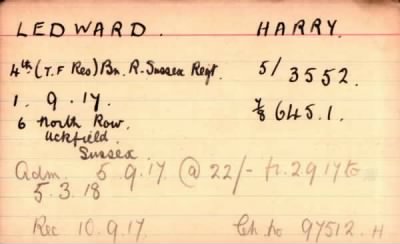 LEDWARD. HARRY.
4th (T.F Res) Bn. R. Sussex Regt. 5/3552.
1. 9. 17. 7/8 645.1.
6 North Row.
Uckfield.
Sussex
Adm. 5.9.17 @ 22/- fr. 2.9.17 to
5.3.18
Rec 10.9.17. Ch. no 97512. H